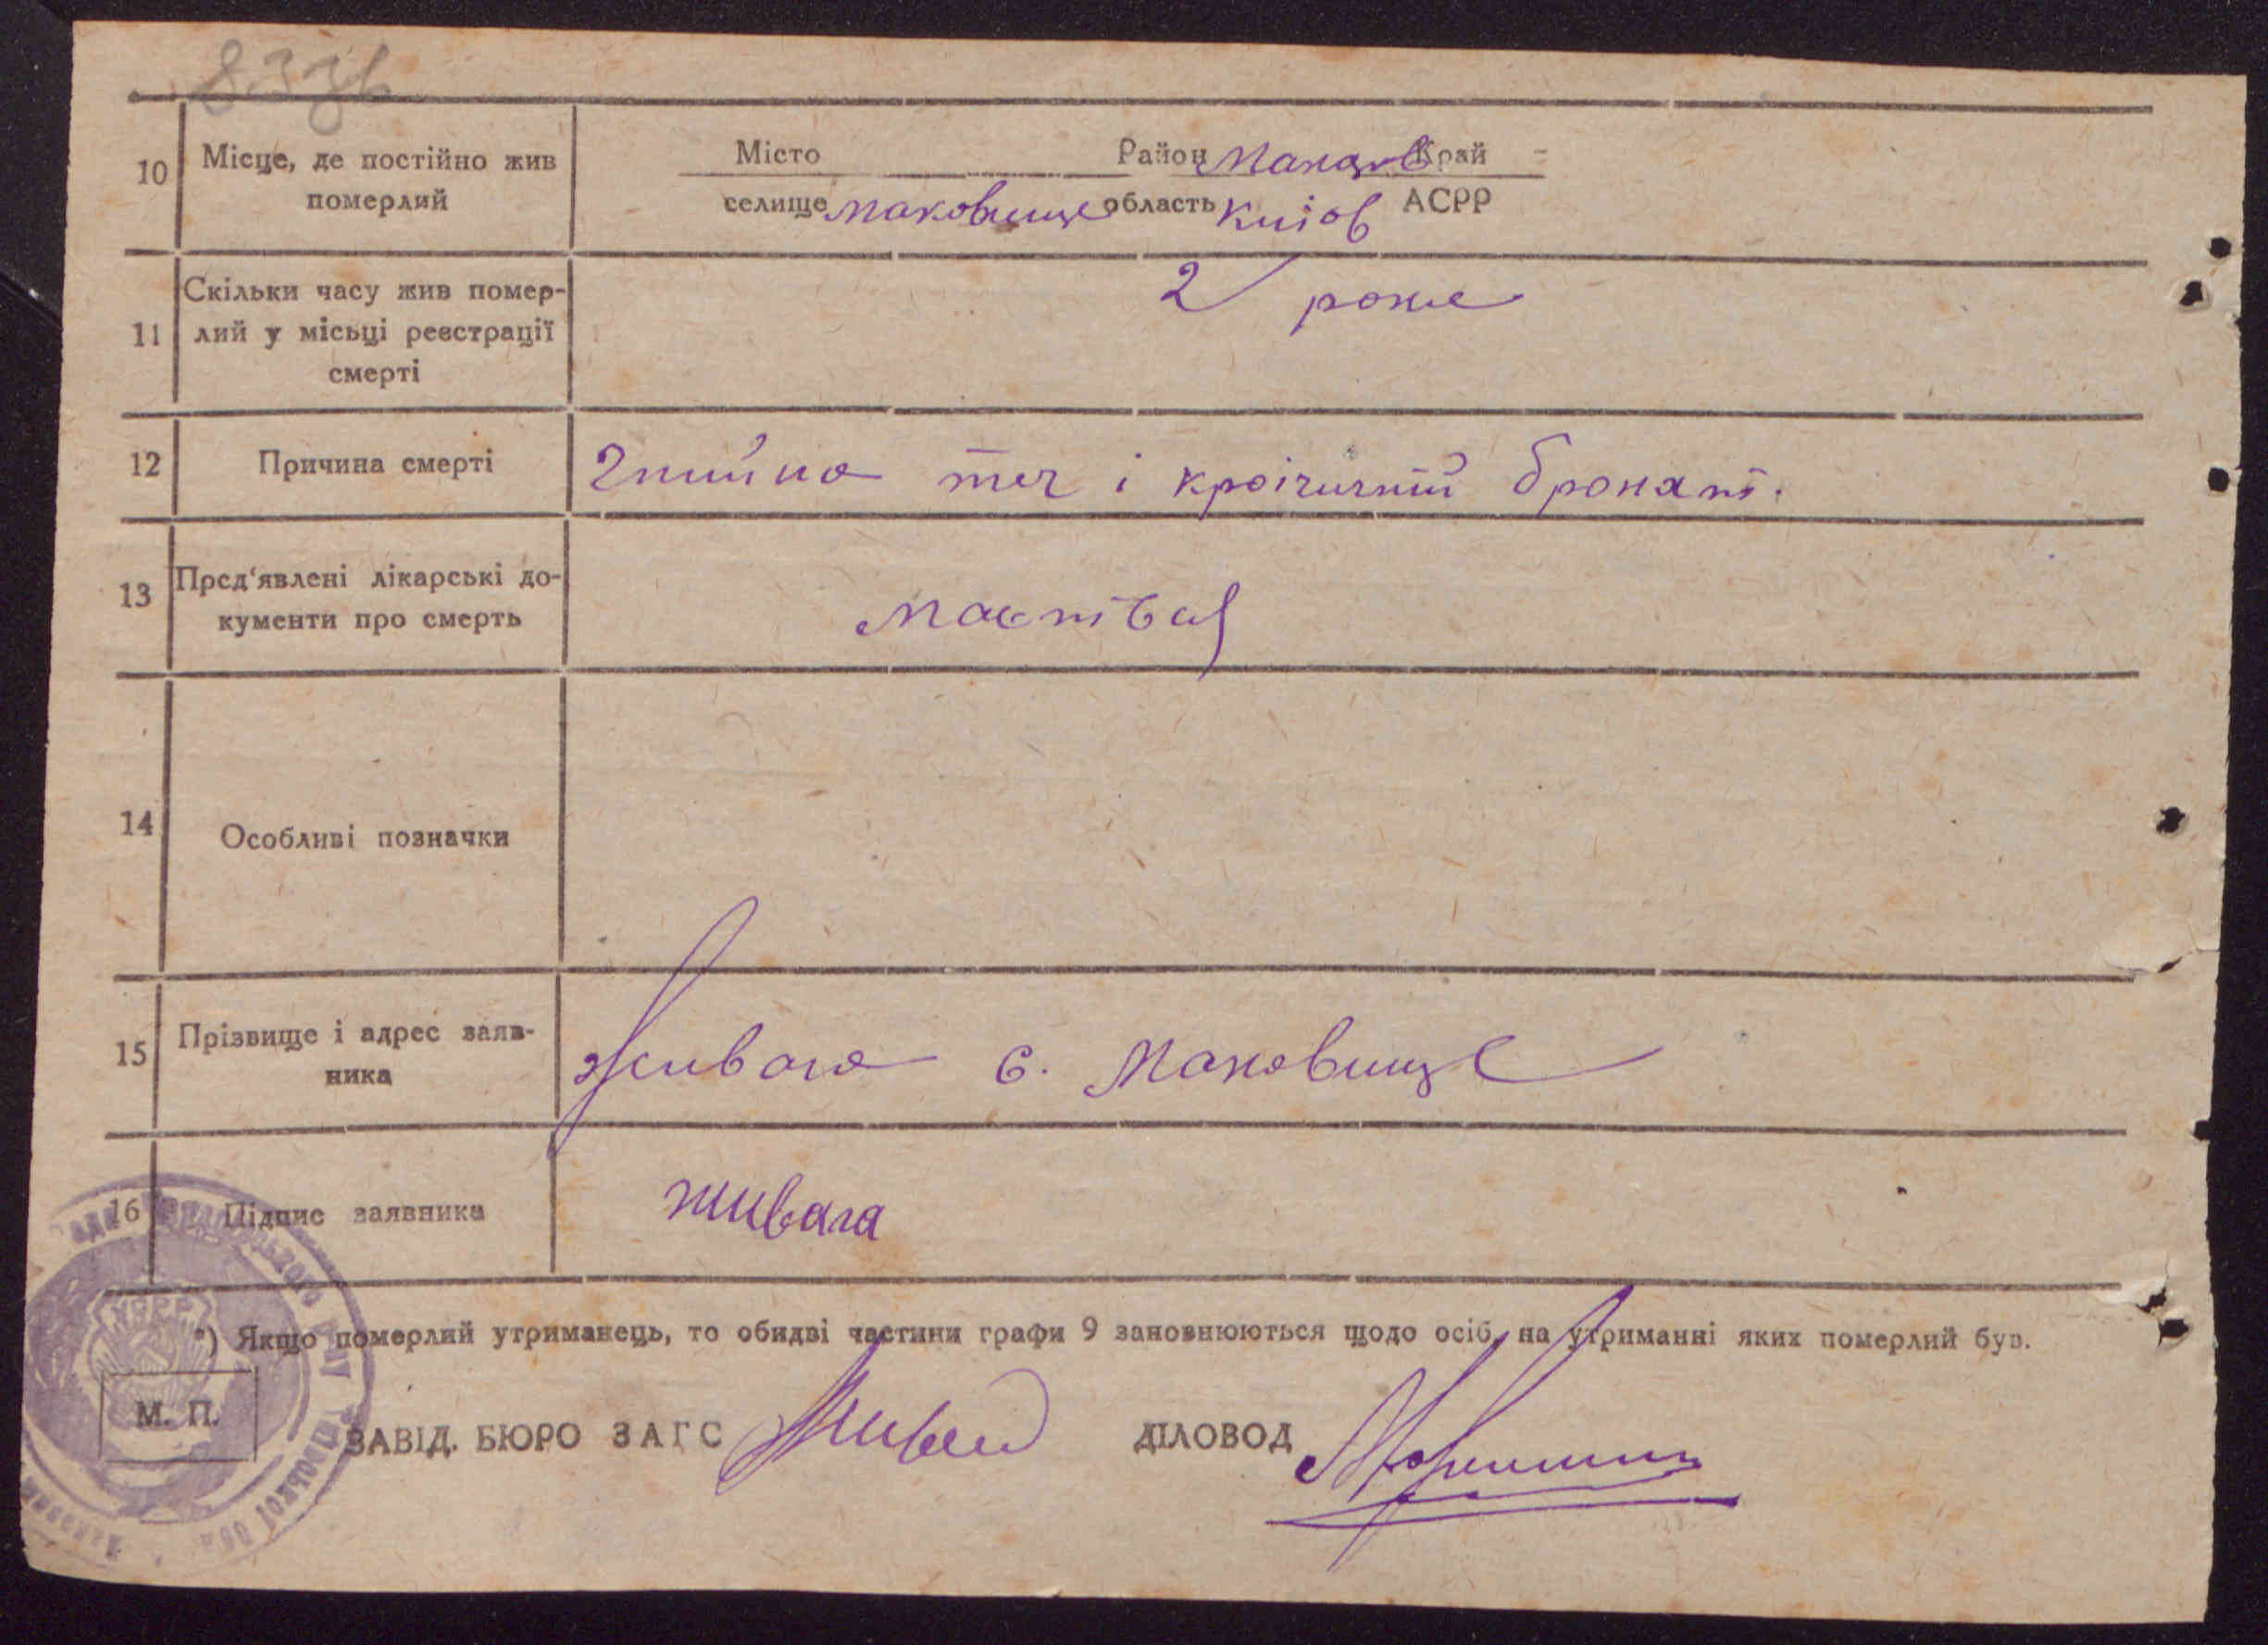 10 Місце, де постійно жив
померлий
Місто Район Край
селище Маковище область Київ АСРР
11 Скільки часу жив помер-
лий у місьці реєстрації
смерті
2 роки
12 Причина смерті
і бронхіт.
13 Пред'явлені лікарські до-
кументи про смерть
14 Особливі позначки
15 Прізвище і адрес заяв-
ника
Живага с. Маковище
16 Підпис заявника
живага
УСРР
*) Якщо померлий утриманець, то обидві частини графи 9 зановнюються щодо осіб, на утриманні яких померлий був.
М. П.
ЗАВІД. БЮРО ЗАГС ДІЛОВОД